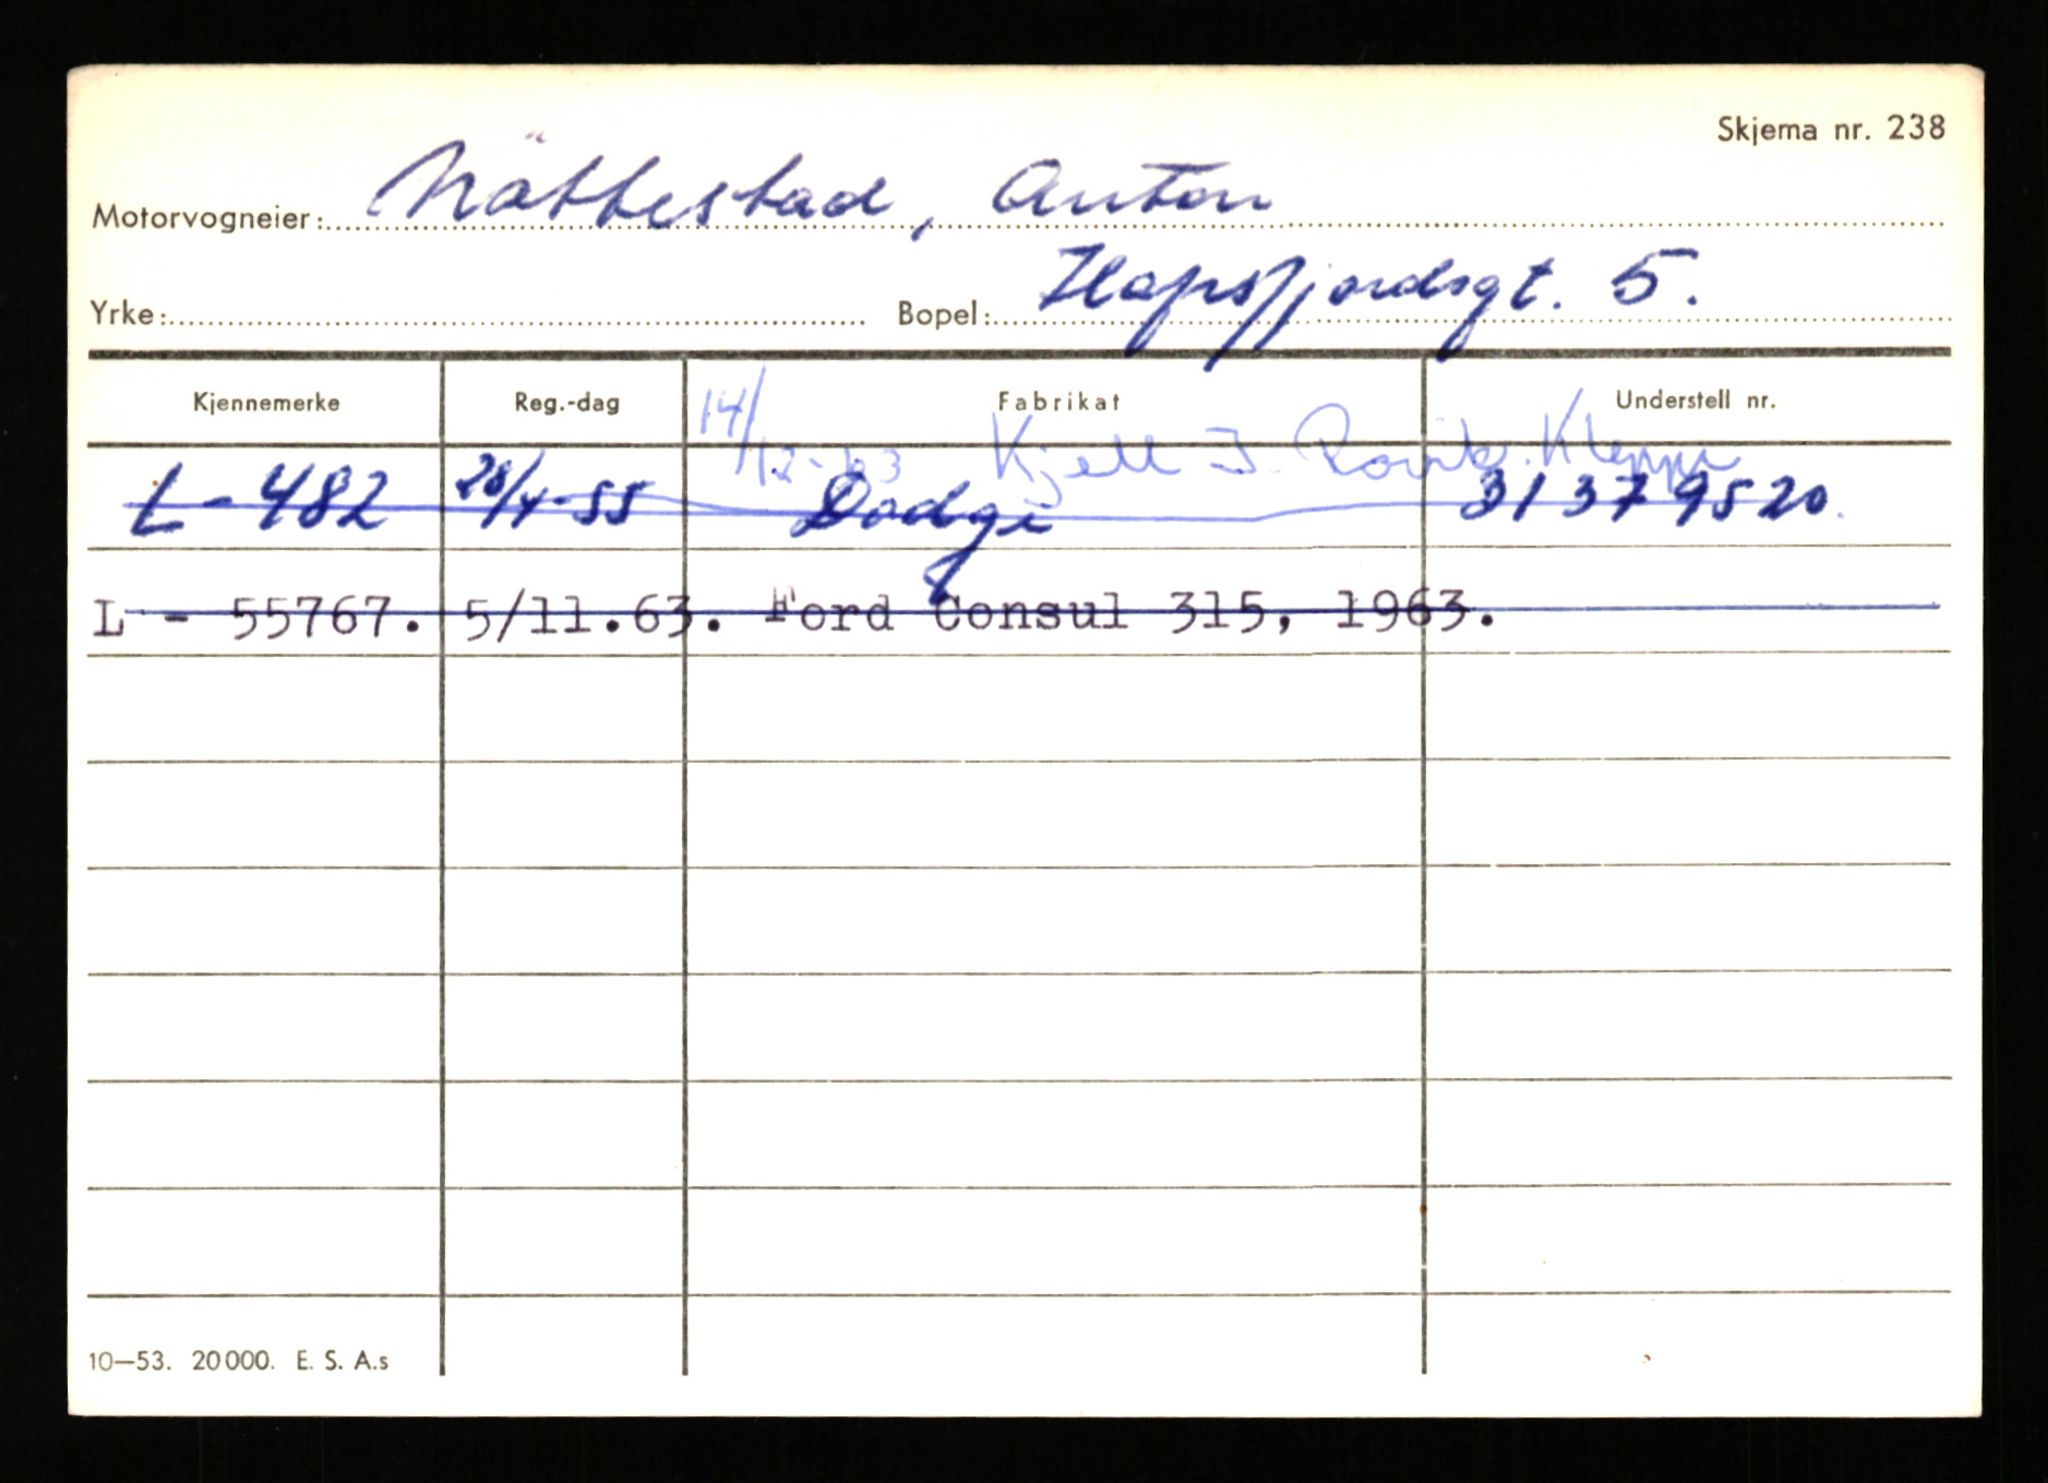 Skjema nr. 238
Motorvogneier: Nättestad, Anton
Yrke: Bopel: Hafrsfjordsgt. 5.
Kjennemerke Reg.-dag Fabrikat Understell nr.
14/12-63 Kjell I. Rovik. Kleppe
L - 482 28/4-55 Dodge 31379520.
L - 55767. 5/11.63. Ford Consul 315, 1963.
10—53. 20000. E. S. A.s